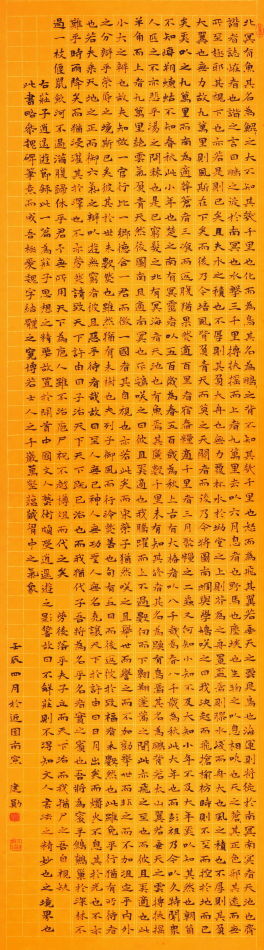 北冥有魚其名為鯤之大不知其幾千里也化而為鳥其名為鵬之背不知其幾千里也怒而為鳥也海運則將徙於南冥南冥者天池也齊
諧者志怪者也諧之言曰鵬之徙於南冥也水擊三千里摶扶搖而上者九萬里去以六月息者也野馬也塵埃也生物之以息相吹也天之蒼蒼其正色邪其遠而無
所至極邪其視下也亦若是則已矣且夫水之積也不厚則其負大舟也無力覆杯水於坳堂之上則芥為之舟置杯焉則膠水淺而舟大也風之積也不厚則其負
大翼也無力故九萬里則風斯在下矣而後乃今培風背負青天而莫之夭閼者而後乃今將圖南蜩與學鳩笑之曰我決起而飛搶榆枋時則不至而控於地而已
矣奚以之九萬里而南為適莽蒼者三湌而反腹猶果然適百里者宿舂糧適千里者三月聚糧之二蟲又何知小知不及大知小年不及大年奚以知其然也朝菌
不知晦朔蟪蛄不知春秋此小年也楚之南有冥靈者以五百歲為春五百歲為秋上古有大椿者以八千歲為春八千歲為秋此大年也而彭祖乃今以久特聞眾
人匹之不亦悲乎湯之問棘也是已窮髮之北有冥海者天池也有魚焉其廣數千里未有知其修者其名為鯤有鳥焉其名為鵬背若太山翼若垂天之雲摶扶搖
羊角而上者九萬里絕雲氣負青天然後圖南且適南冥也斥鴳笑之曰彼且奚適也我騰躍而上不過數仞而下翱翔蓬蒿之間此亦飛之至也而彼且奚適也此
小大之辯也故夫知效一官行比一鄉德合一君而徵一國者其自視也亦若此矣而宋榮子猶然笑之且舉世而譽之而不加勸舉世而非之而不加沮定乎內外
之分辯乎榮辱之境斯已矣彼其於世未數數然也雖然猶有未樹也夫列子御風而行泠然善也旬有五日而後反彼於致福者未數數然也此雖免乎行猶有所待者
也若夫乘天地之正而御六氣之辯以遊無窮者彼且惡乎待哉故曰至人無己神人無功聖人無名堯讓天下於許由曰日月出矣而爝火不息其於光也不亦
難乎時雨降矣而猶浸灌其於澤也不亦勞乎請致天下許由曰子治天下天下既已治也而我猶代子吾將為名乎名者實之賓也吾將為賓乎鷦鷯巢於深林不
過一枝偃鼠飲河不過滿腹歸休乎君予無所用天下為庖人雖不治庖尸祝不越樽俎而代之矣 勞後落乎夫子立而天下治而我猶尸之吾自視缺
右莊子逍遙遊節錄此一篇為莊子思想之精華故置於開首中國文人藝術頗受逍遙遊之影響故曰不解莊則不得知文人書法之精妙也之境界也
此書略參魏碑筆意 吾極愛魏字結體之寬博若士人之千 萬壑蘊藏胸中之氣象
壬辰四月於近園南窗 建勛